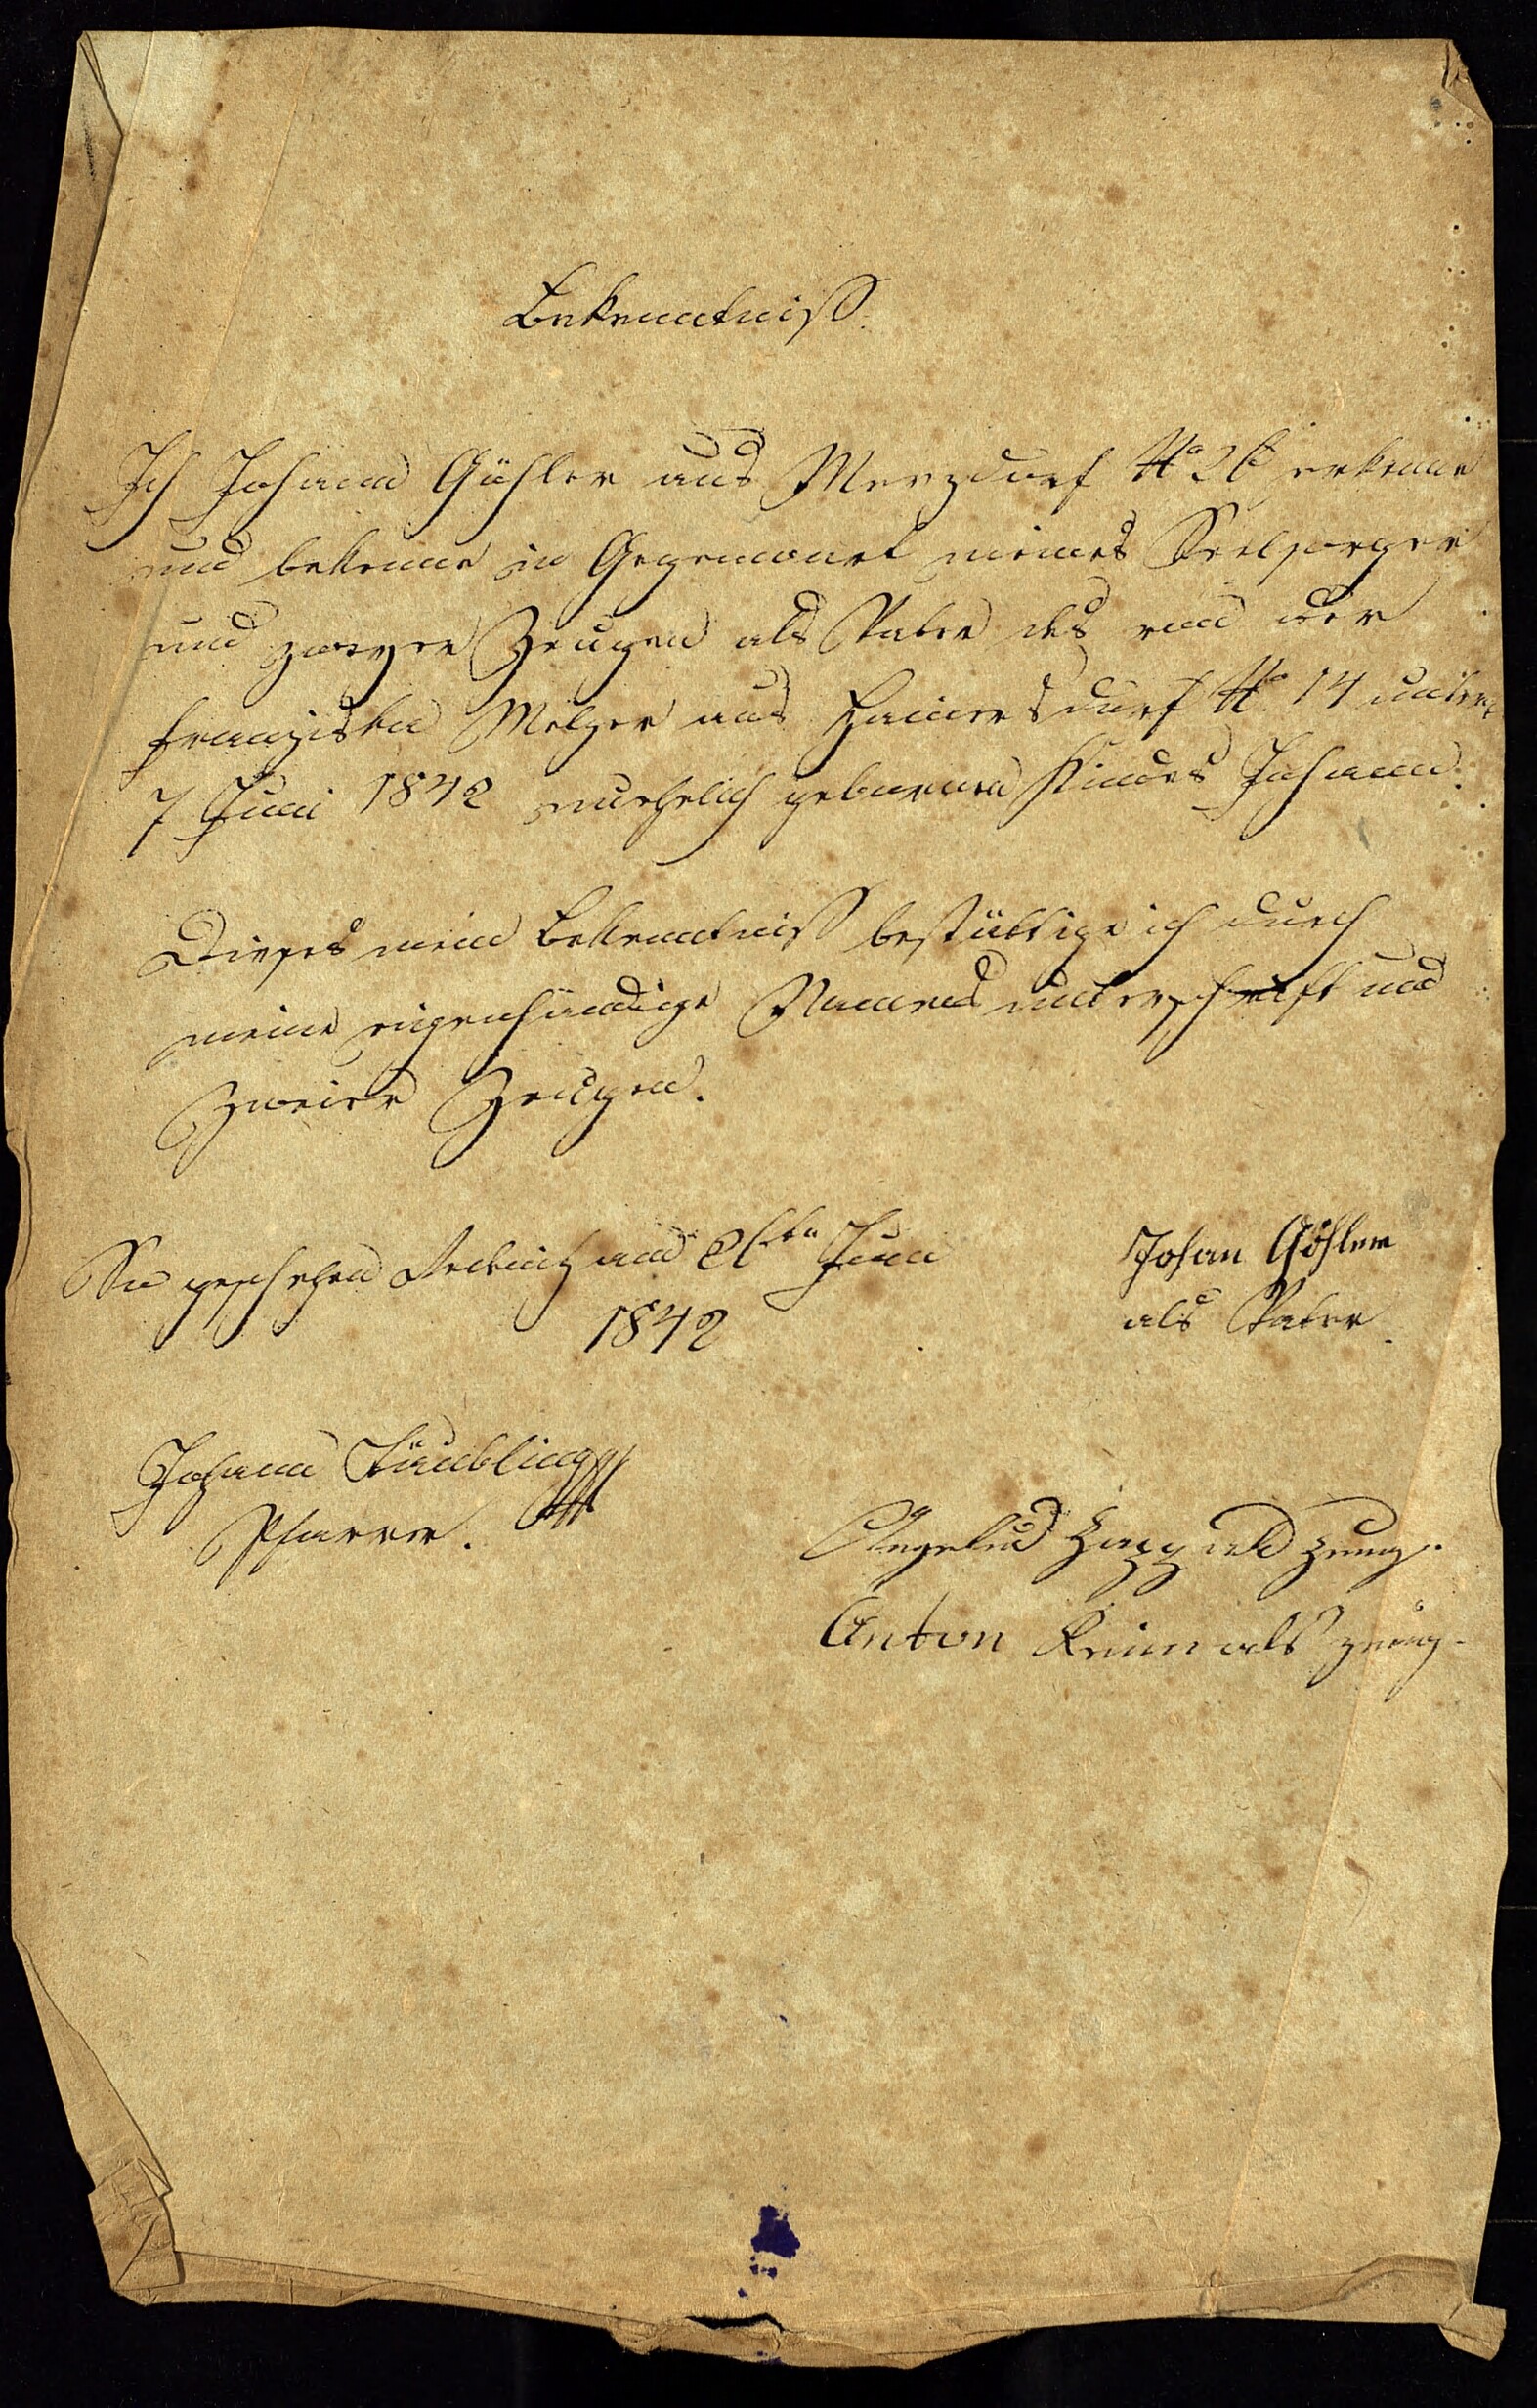 Bekenntniß.
Ich Johann Göhler aus Merzdorf No 26 erkenne
und bekenne in Gegenwart meines Seelsorger
und zweyer Zeugen als Vater des von der
Franziska Melzer aus Hainersdorf No. 14 unterm
7 Juni 1842 unehelich gebornen Kindes Johann.
Dieses mein Bekenntniß bestättige ich durch
meine eigenhändige Namensunterschrift und
zweier Zeugen.
So geschehen am 26ten Juni
1842
Johan Göhler
als Vater.
Johann Täubling
Pfarrer.
als Zeug.
Anton Keim als Zeug.